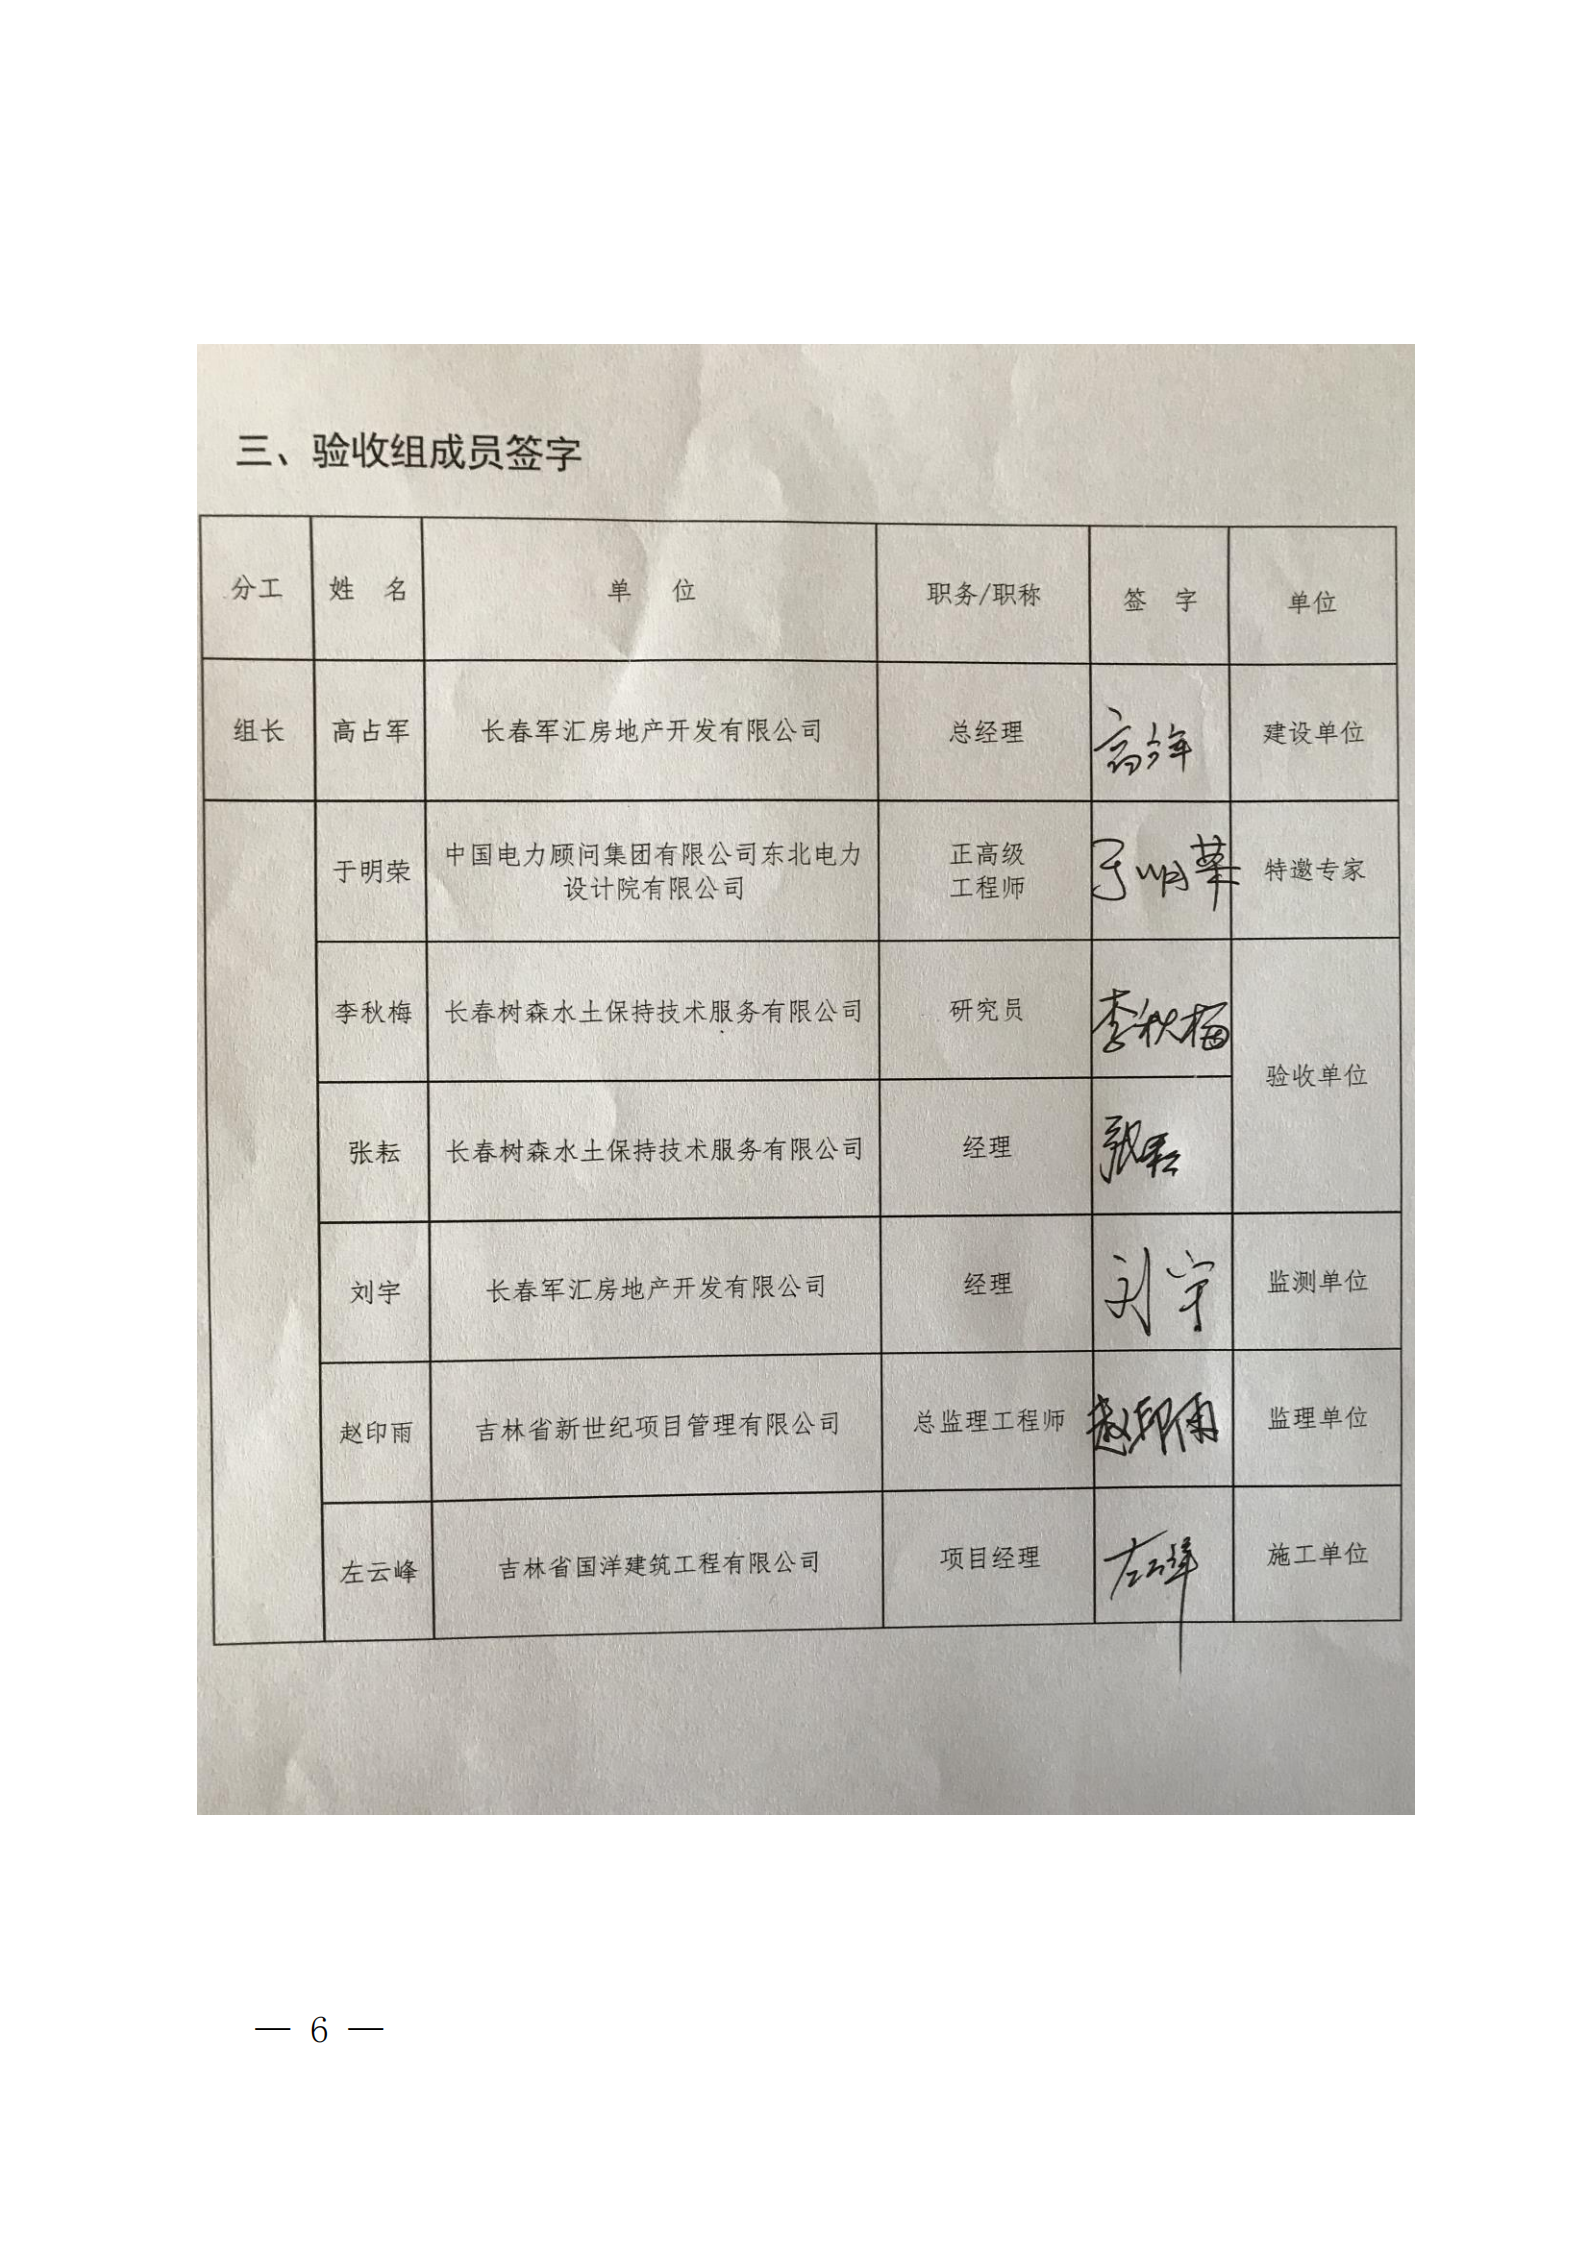 三、验收组成员签字
分工 姓 名 单 位 职务/职称 签 字 单位
组长 高占军 长春军汇房地产开发有限公司 总经理 高占军 建设单位
于明荣 中国电力顾问集团有限公司东北电力 正高级 于明荣 特邀专家
设计院有限公司 工程师
李秋梅 长春树森水土保持技术服务有限公司 研究员 李秋梅
验收单位
张耘 长春树森水土保持技术服务有限公司 经理 张耘
刘宇 长春军汇房地产开发有限公司 经理 刘宇 监测单位
赵印雨 吉林省新世纪项目管理有限公司 总监理工程师 赵印雨 监理单位
左云峰 吉林省国洋建筑工程有限公司 项目经理 左云峰 施工单位
— 6 —